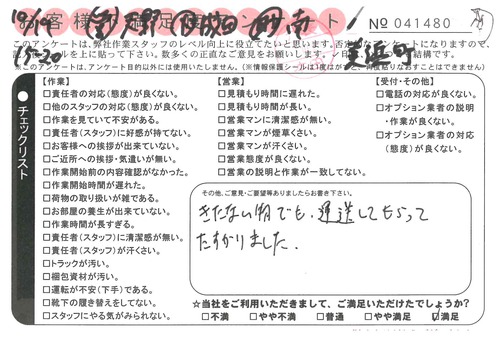 お客様満足度アンケート
No 041480
10/14
15:30
美浜町
このアンケートは、弊社作業スタッフのレベル向上に役立てたいと思います。否定的なアンケートになりますので、
数多くの正直なご意見をお願いします。
※このアンケートは、アンケート目的以外には使用いたしません。(※情報保護シールは1度はがすと、再度貼りなおすことはできません)
チェックリスト
【作業】
□責任者の対応(態度)が良くない。
□他のスタッフの対応(態度)が良くない。
□作業を見ていて不安がある。
□責任者(スタッフ)に好感が持てない。
□お客様への挨拶が出来ていない。
□ご近所への挨拶・気遣いが無い。
□作業開始前の内容確認がなかった。
□作業開始時間が遅れた。
□荷物の取り扱いが雑である。
□お部屋の養生が出来ていない。
□作業時間が長すぎる。
□責任者(スタッフ)に清潔感が無い。
□責任者(スタッフ)が汗くさい。
□トラックが汚い。
□梱包資材が汚い。
□運転が不安(下手)である。
□靴下の履き替えをしてない。
□スタッフにやる気がみられない。
【営業】
□見積もり時間に遅れた。
□見積もり時間が長い。
□営業マンに清潔感が無い。
□営業マンが煙草くさい。
□営業マンが汗くさい。
□営業態度が良くない。
□営業の説明と作業が一致してない。
【受付・その他】
□電話の対応が良くない。
□オプション業者の説明
・作業が良くない。
□オプション業者の対応
(態度)が良くない。
その他、ご意見・ご要望等ありましたらお書き下さい。
きたない物でも、運送してもらって
たすかりました。
☆当社をご利用いただきまして、ご満足いただけたでしょうか?
□不満 □やや不満 □普通 □やや満足 ☑満足